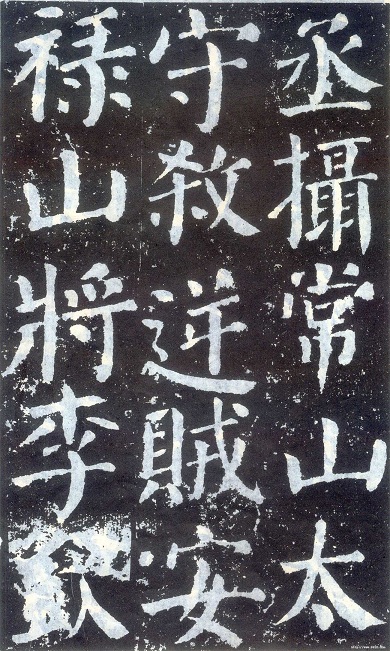 丞攝常山太
守殺逆賊安
禄山將李欽